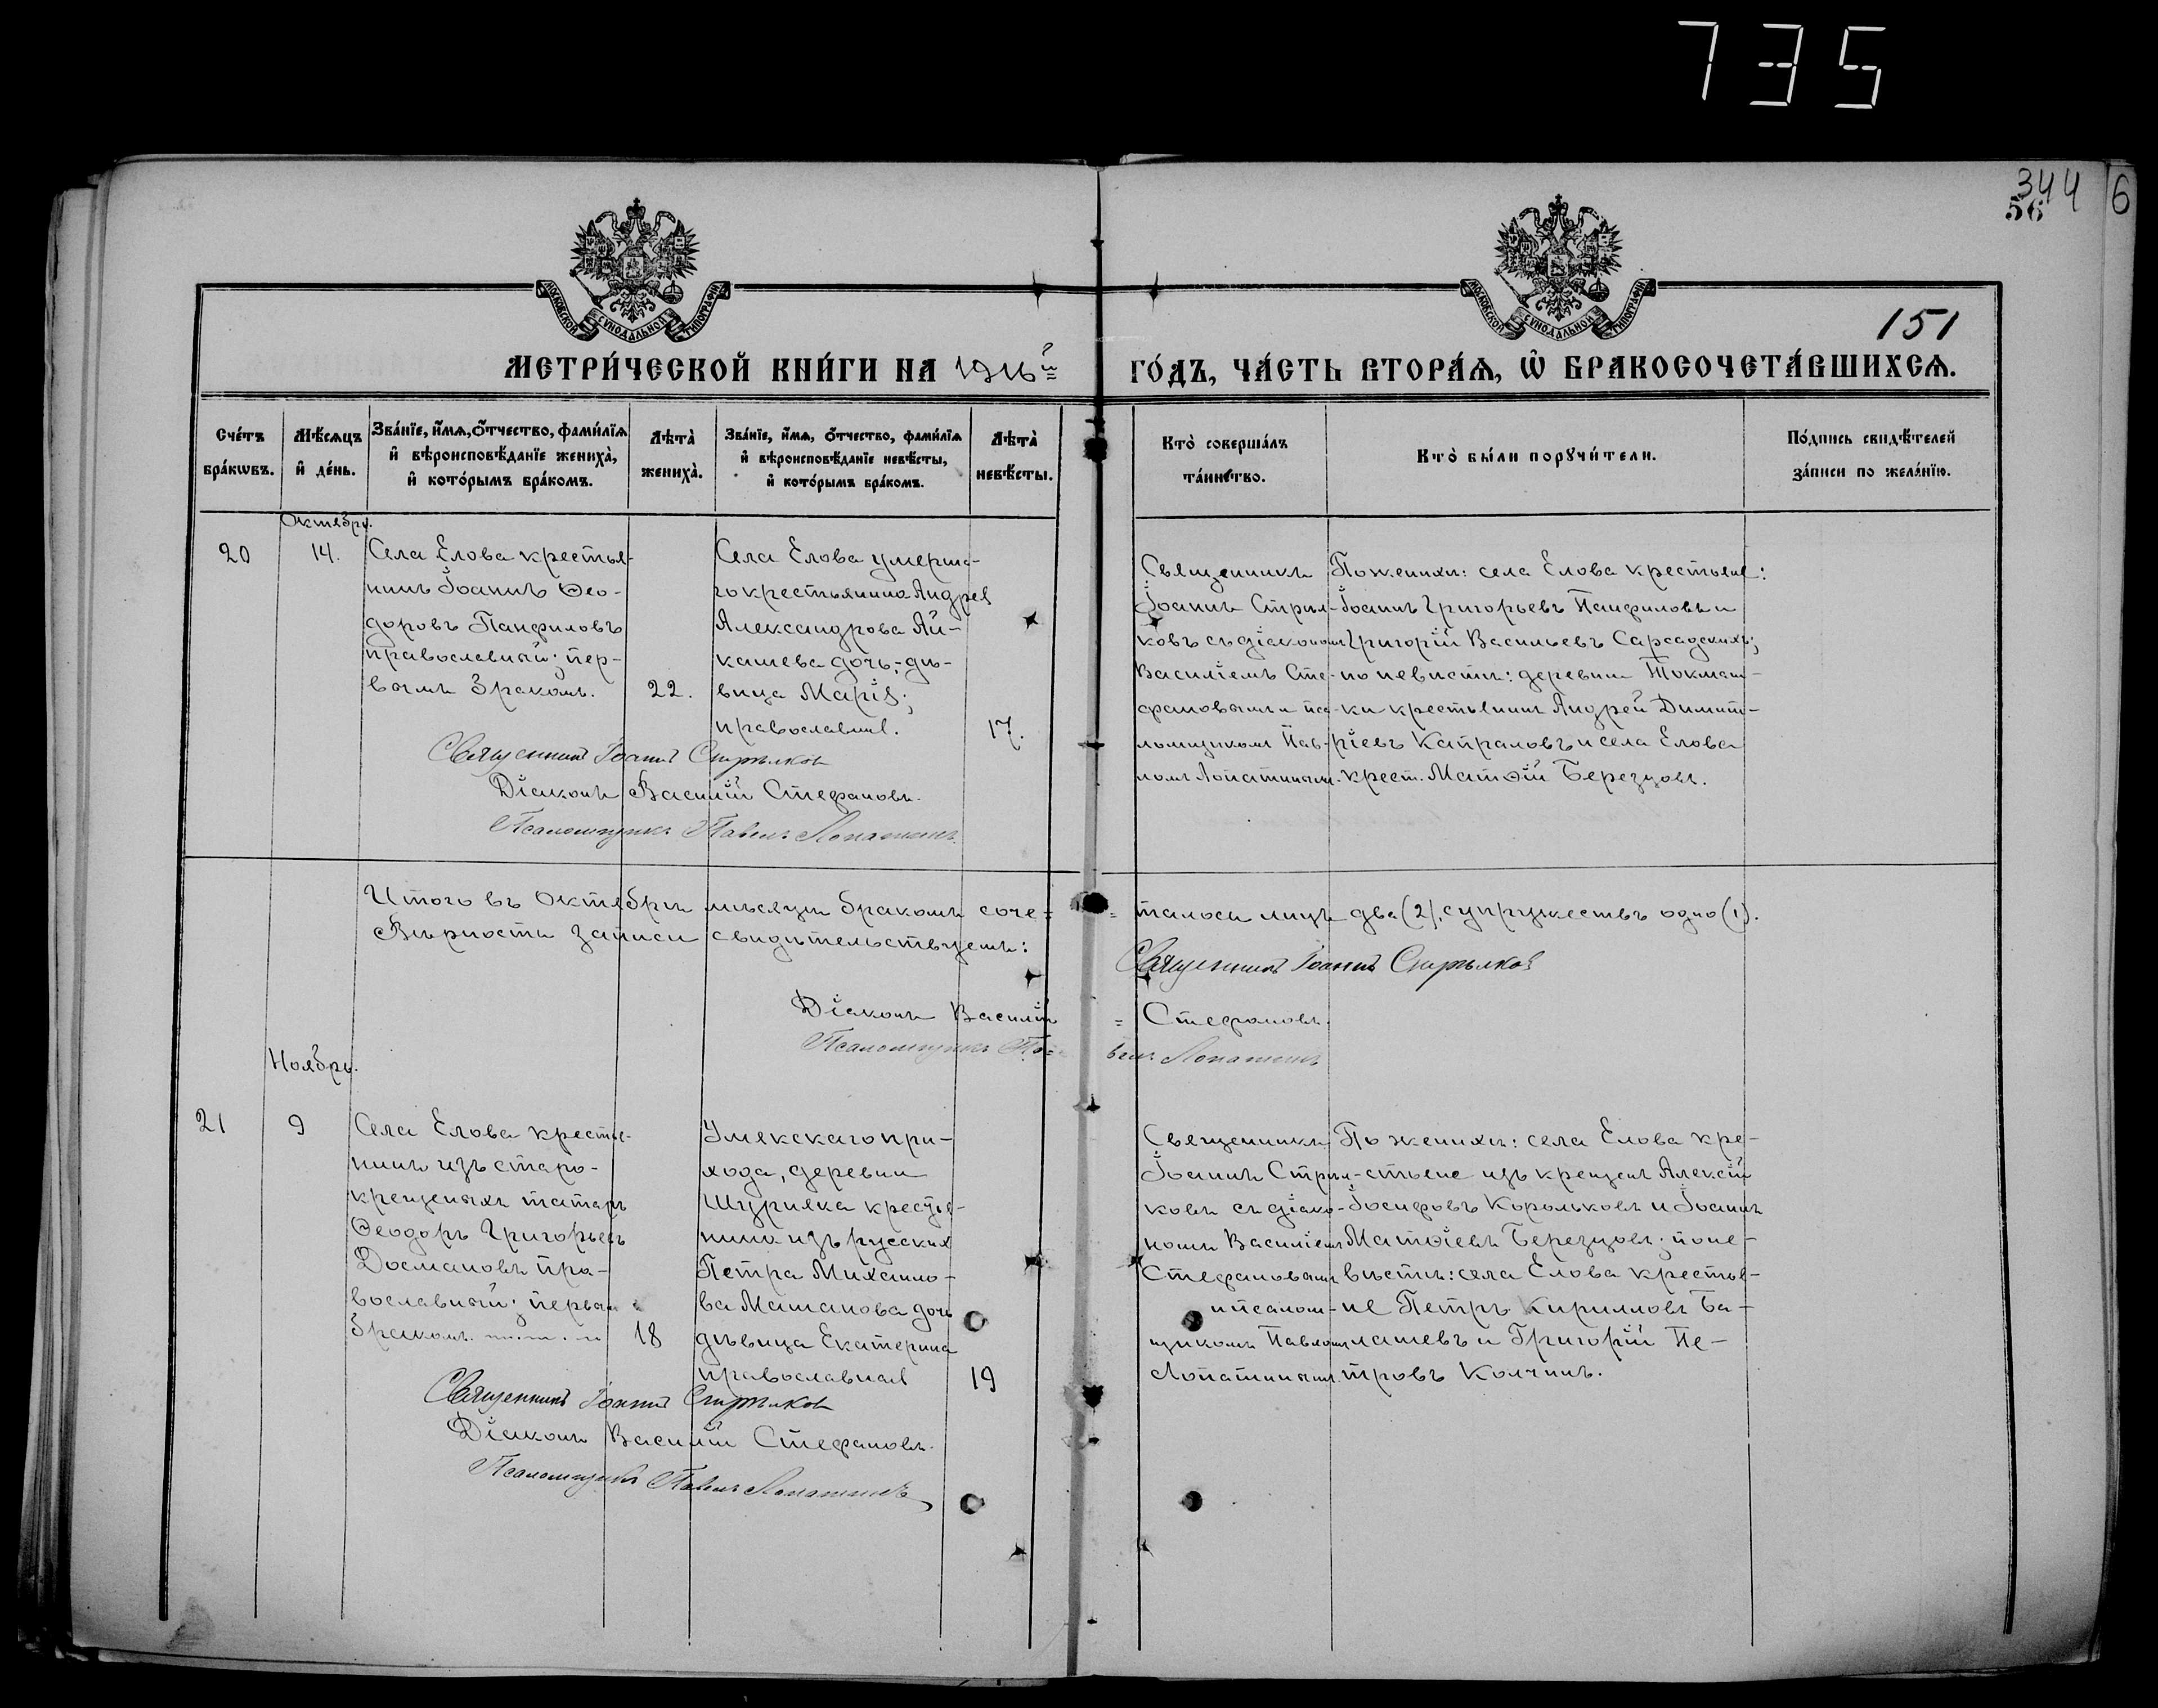 735
344
56
6
151
МОСКОВСКОЙ СѴНОДАЛЬНОЙ ТИПОГРАФІИ
МОСКОВСКОЙ СѴНОДАЛЬНОЙ ТИПОГРАФІИ
МЕТРИ́ЧЕСКОЙ КНИ́ГИ НА 1916й ГО́ДЪ, ЧА́СТЬ ВТОРА́Ѧ, Ѡ҆ БРАКОСОЧЕТА́ВШИХСѦ.
Сче́тъ бра́кѡвъ.
Мѣ́сѧцъ и҆ де́нь.
Зва́нїе, и҆́мѧ, о҆́тчество, фами́лїѧ
и҆ вѣроисповѣ́данїе жениха̀,
и҆ кото́рымъ бра́комъ.
Лѣта̀ жениха̀.
Зва́нїе, и҆́мѧ, о҆́тчество, фами́лїѧ
и҆ вѣроисповѣ́данїе невѣ́сты,
и҆ кото́рымъ бра́комъ.
Лѣта̀ невѣ́сты.
Кто̀ соверша́лъ
та́инство.
Кто̀ бы́ли порꙋчи́тели.
По́дпись свидѣ́телей
за́писи по жела́нїю.
Октябрь.
20
14.
Села Елова крестья-
нинъ Іоаннъ Ѳео-
доровъ Панфиловъ
православный; пер-
вымъ бракомъ.
22.
Села Елова умерша-
го крестьянина Андрея
Александрова Ай-
кашева дочь, дѣ-
вица Марія;
православная.
17.
Священникъ
Іоаннъ Стрѣл-
ковъ съ діакономъ
Василіемъ Сте-
фановымъ и пса-
ломщикомъ Пав-
ломъ Лопатинымъ.
По женихѣ: села Елова крестьяне:
Іоаннъ Григорьевъ Панфиловъ и
Григорій Васильевъ Сарсадскихъ;
по невѣстѣ: деревни Токмаш-
ки крестьянинъ Андрей Димит-
ріевъ Капраловъ и села Елова
крест. Матѳій Березцовъ.
Священникъ Іоаннъ Стрѣлковъ
Діаконъ Василій Стефановъ.
Псаломщикъ Павелъ Лопатинъ.
Итого въ Октябрѣ мѣсяцѣ бракомъ соче-
талось лицъ два (2), супружествъ одно (1).
Вѣрность записи свидѣтельствуемъ:
Священникъ Іоаннъ Стрѣлковъ
Діаконъ Василій Стефановъ.
Псаломщикъ Павелъ Лопатинъ
Ноябрь.
21
9
Села Елова крестья-
нинъ изъ старо-
крещеныхъ татаръ
Ѳеодоръ Григорьевъ
Досмановъ пра-
вославный; первым
бракомъ.
18
Умекскаго при-
хода, деревни
Шуряка крестья-
нина изъ русскихъ
Петра Михаило-
ва Машанова дочь
дѣвица Екатерина
православная
19
Священникъ
Іоаннъ Стрѣл-
ковъ съ діако-
номъ Василіемъ
Стефановымъ
и псалом-
щикомъ Павломъ
Лопатинымъ.
По женихѣ: села Елова кре-
стьяне изъ крещенъ Алексій
Іосифовъ Корольковъ и Іоаннъ
Матѳіевъ Березцовъ; по не-
вѣстѣ: села Елова крестья-
не Петръ Кирилловъ Ба-
лашевъ и Григорій Пе-
тровъ Колчинъ.
Священникъ Іоаннъ Стрѣлковъ
Діаконъ Василій Стефановъ.
Псаломщикъ Павелъ Лопатинъ